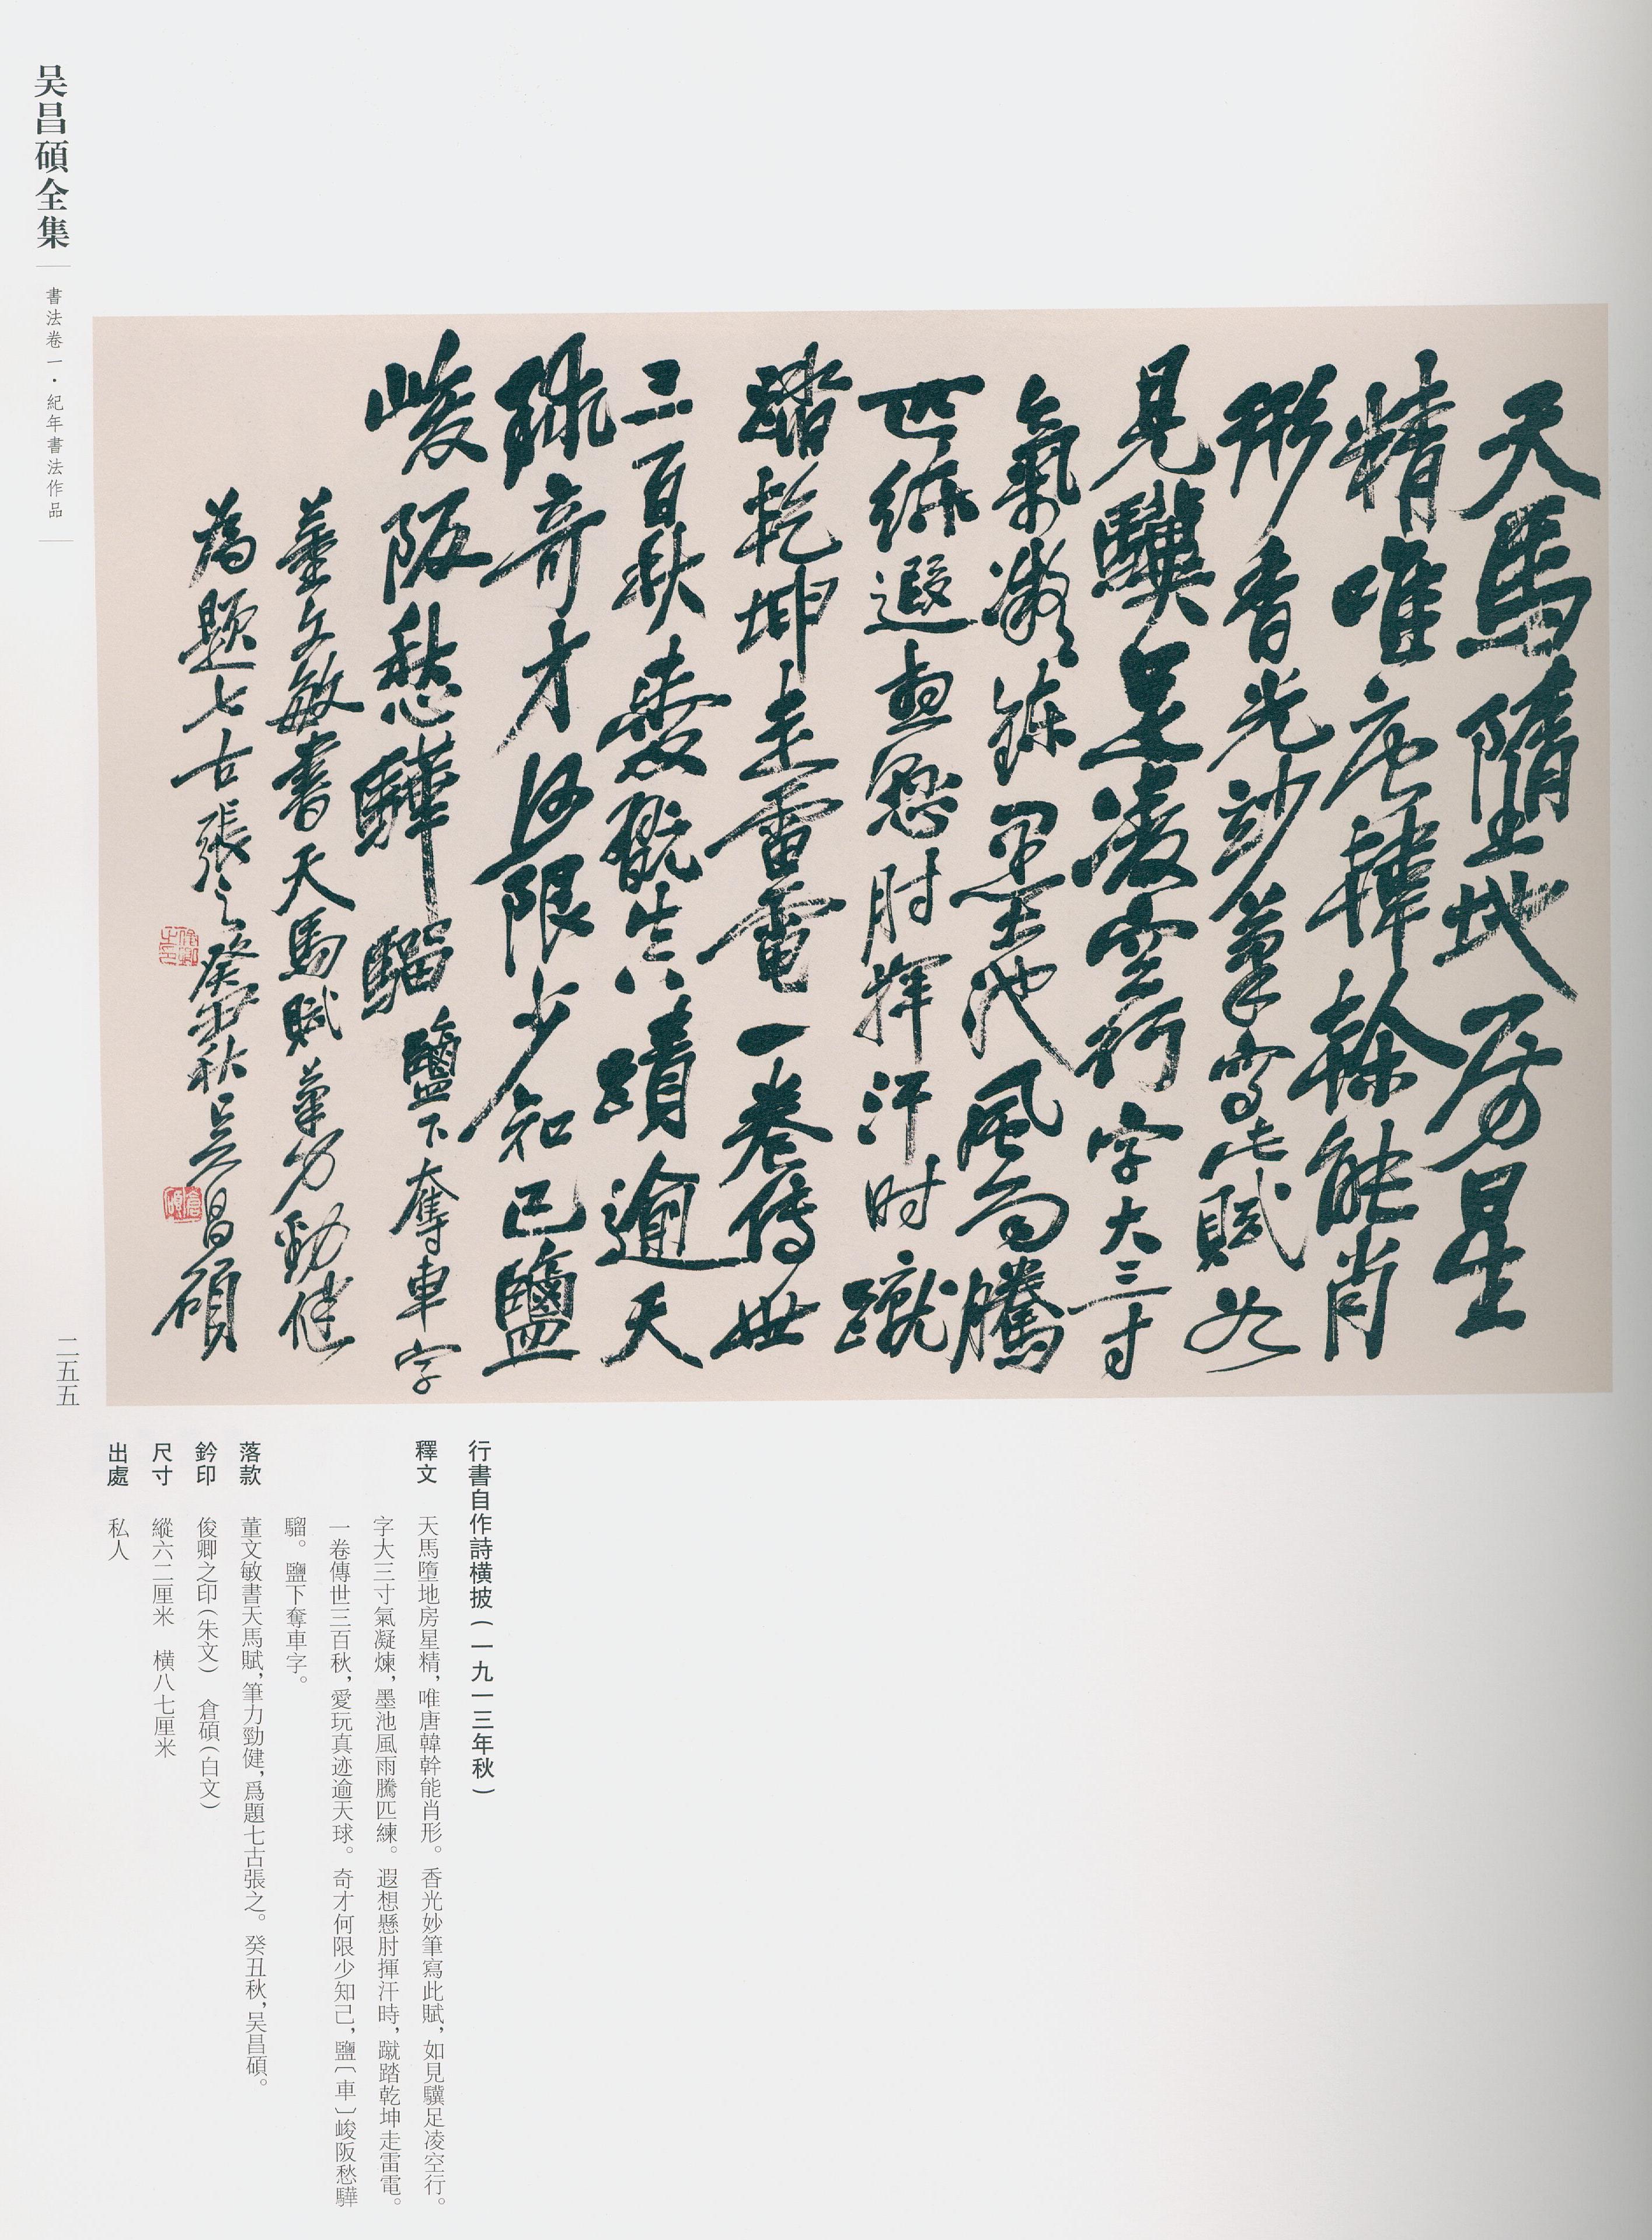 吴昌碩全集
書法卷一·紀年書法作品
二五五
天馬墮地房星
精唯唐韓幹能肖
形香光妙筆寫此賦如
見驥足凌空行字大三寸
氣凝鍊墨池風雨騰
匹練遐想懸肘揮汗時蹴
踏乾坤走雷電一卷傳世
三百秋愛翫真蹟逾天
球奇才何限少知己鹽
峻阪愁驊騮鹽下奪車字
董文敏書天馬賦筆力勁健
為題七古張之癸丑秋吳昌碩
倉碩
行書自作詩橫披(一九一三年秋)
釋文 天馬墮地房星精,唯唐韓幹能肖形。香光妙筆寫此賦,如見驥足凌空行。
字大三寸氣凝煉,墨池風雨騰匹練。遐想懸肘揮汗時,蹴踏乾坤走雷電。
一卷傳世三百秋,愛玩真迹逾天球。奇才何限少知己,鹽〔車〕峻阪愁驊
騮。鹽下奪車字。
落款 董文敏書天馬賦,筆力勁健,爲題七古張之。癸丑秋,吴昌碩。
鈐印 俊卿之印(朱文) 倉碩(白文)
尺寸 縱六二厘米 橫八七厘米
出處 私人